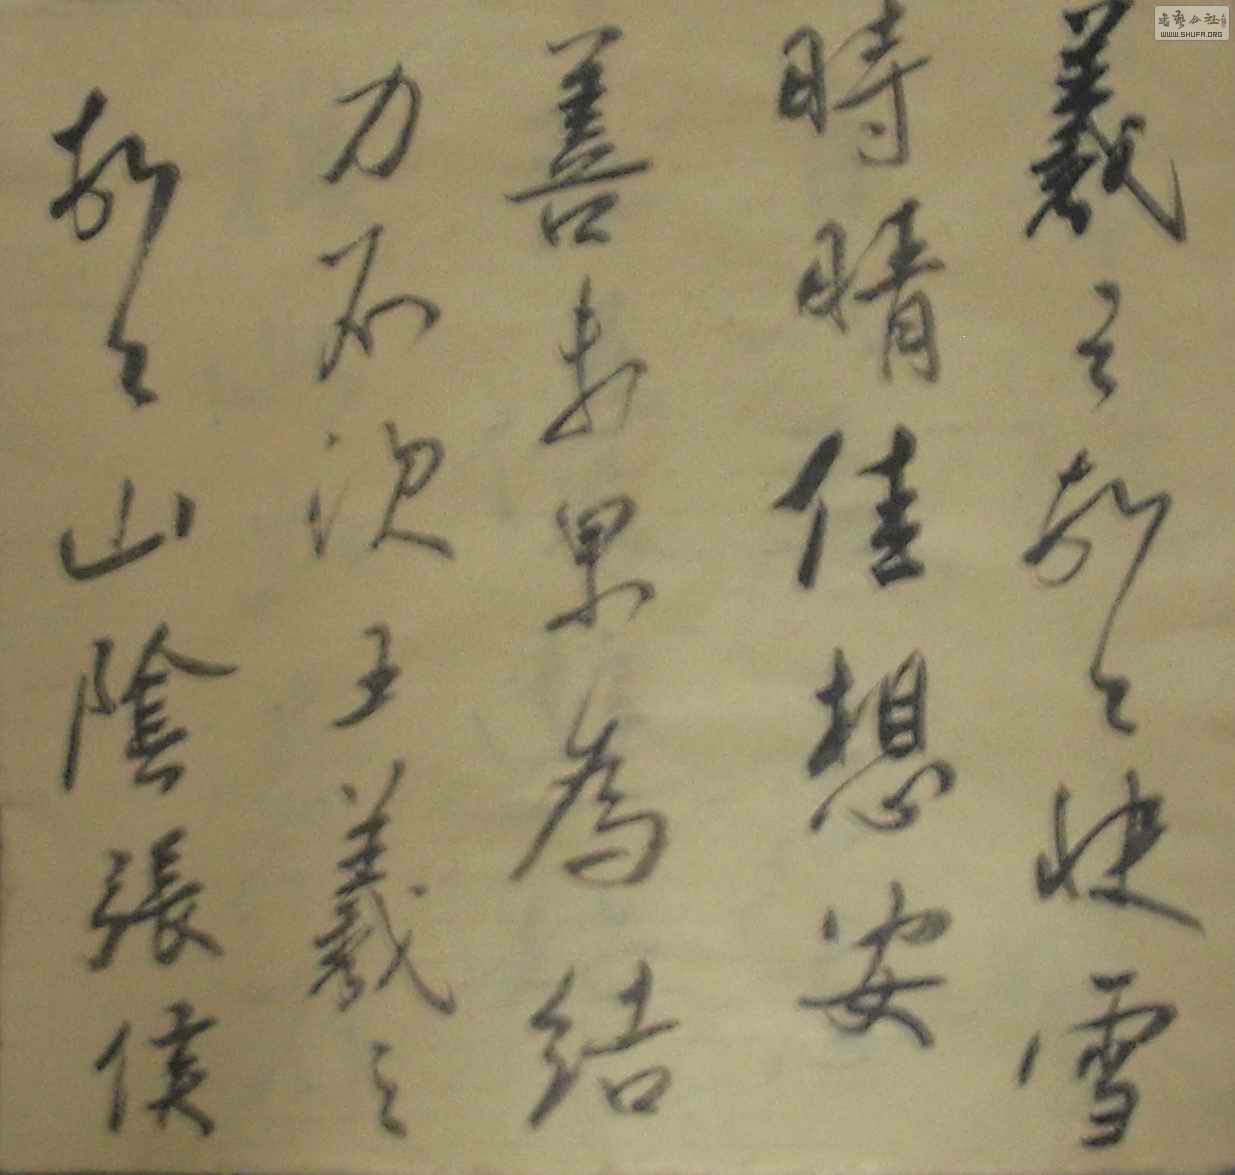 羲之頓首快雪
時晴佳想安
善未果為結
力不次王羲之
頓首山陰張侯
书艺公社
WWW.SHUFA.ORG